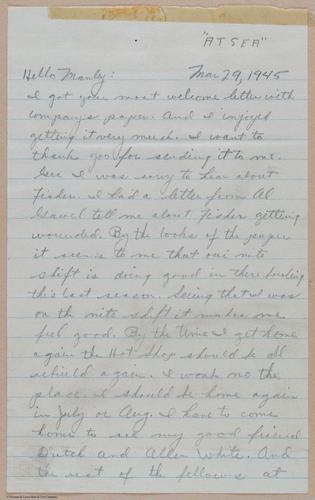 "AT SEA"
Hello Manly: Mar 29, 1945
I got your most welcome letter with
company's paper. And I injoyed
getting it very much. I want to
thank you for sending it to me.
Gee I was sorry to hear about
Fisher. I had a letter from Al
tell me about Fisher getting
wounded. By the looks of the paper
it seems to me that our nite
shift is doing good in there
this last season. Seeing that I was
on the nite shift it makes me
feel good. By the time I get home
again the Hot Shop should be all
rebuild again. I the
place. I should be home again
in July or Aug. I have to come
home to see my good friend
Dutch and Allen White. And
the rest of the fellows at